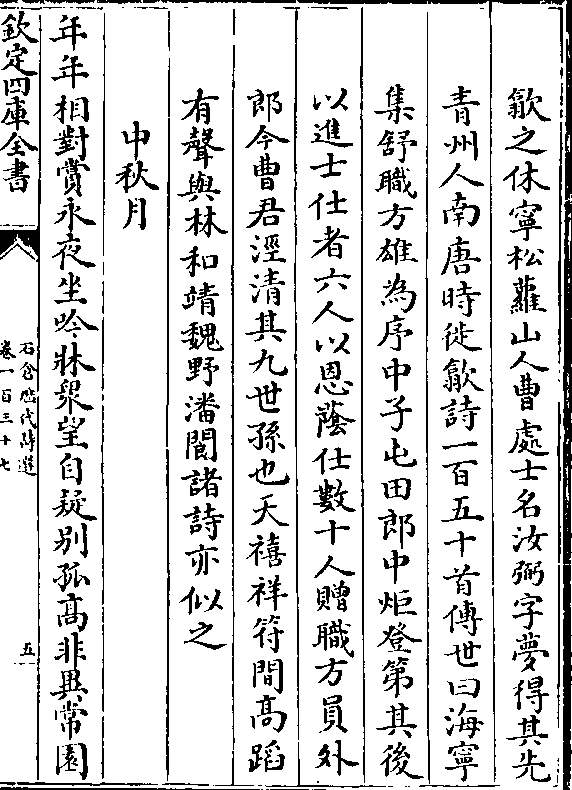 歙之休寧松蘿山人曹處士名汝弼字夢得其先
青州人南唐時徙歙詩一百五十首傳世曰海寧
集舒職方雄為序中子屯田郎中矩登第其後
以進士仕者六人以恩蔭仕數十人贈職方員外
郎今曹君涇清其九世孫也天禧祥符間髙蹈
有聲與林和靖魏野潘閬諸詩亦似之
中秋月
年年相對賞永夜坐吟牀衆望自疑别孤髙非異常園
欽定四庫全書
石倉歴代詩選
卷一百三十七
五